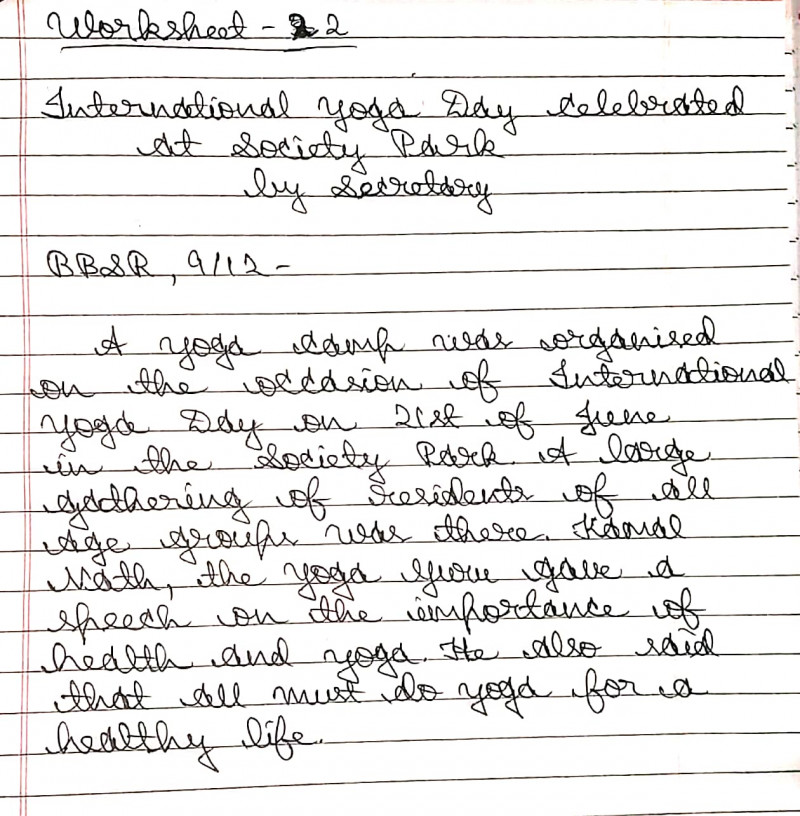 Worksheet - 2
International Yoga Day celebrated
At Society Park
by Secretary
BBSR, 9/12 -
A yoga camp was organised
on the occasion of International
Yoga Day on 21st of June
in the Society Park. A large
gathering of residents of all
age groups was there. Kamal
Nath, the yoga guru gave a
speech on the importance of
health and yoga. He also said
that all must do yoga for a
healthy life.